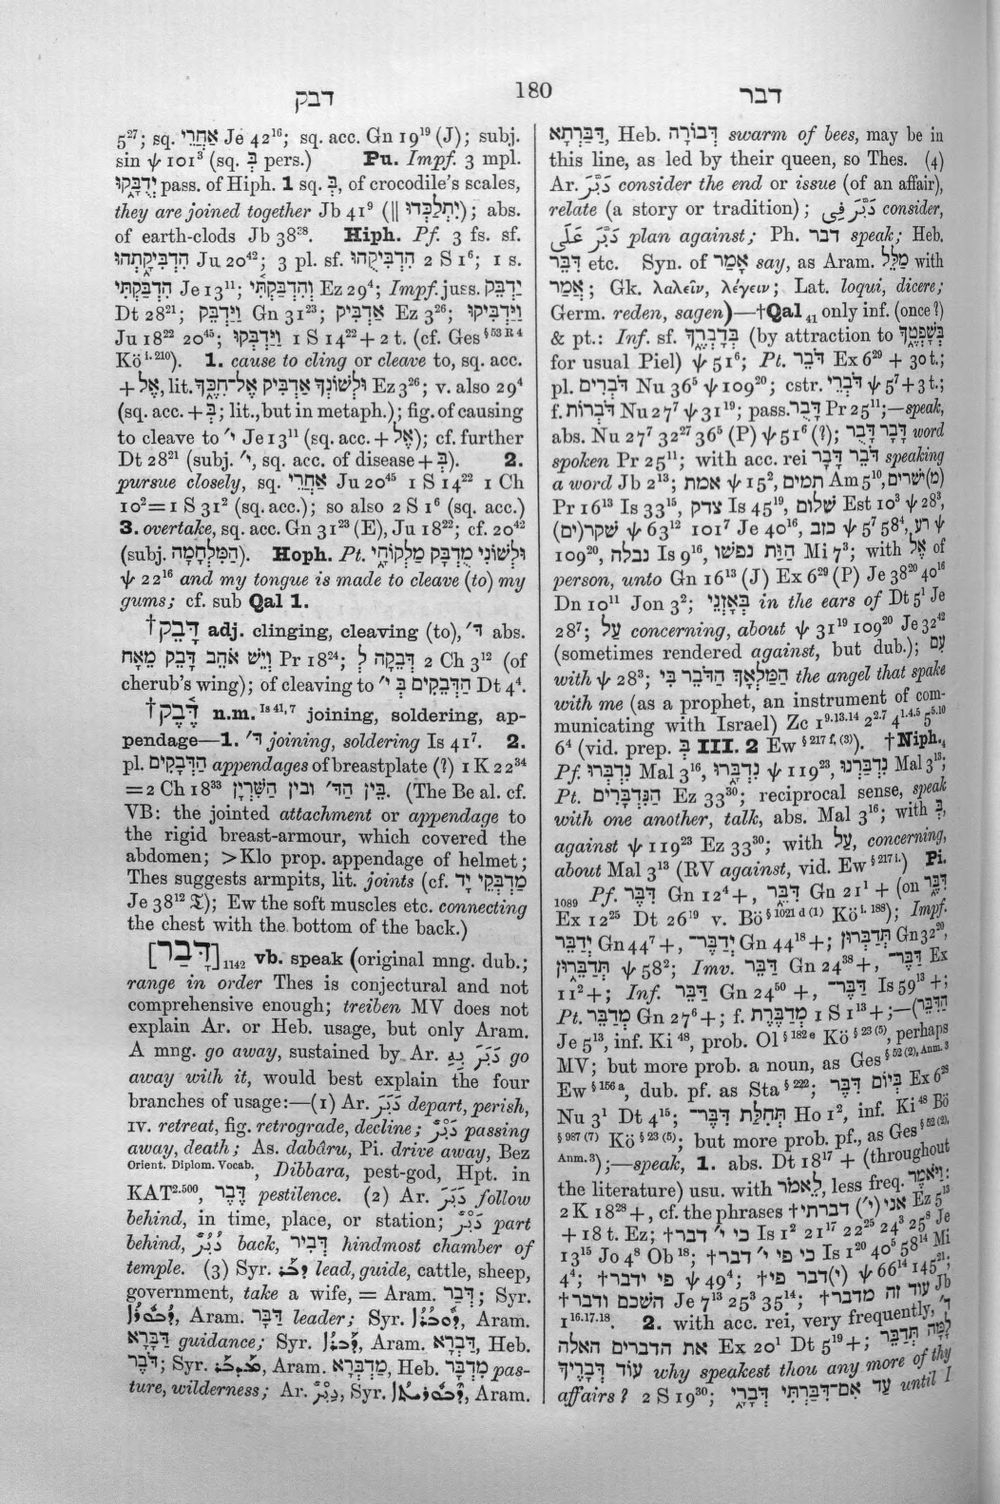 דבק
180
דבר
5²⁷; sq. אַחֲרֵי Je 42¹⁶; sq. acc. Gn 19¹⁹ (J); subj.
sin ψ 101³ (sq. בְּ pers.) Pu. Impf. 3 mpl.
יְדֻבָּ֑קוּ pass. of Hiph. 1 sq. בְּ, of crocodile's scales,
they are joined together Jb 41⁹ (‖ יִתְלַכְּדוּ); abs.
of earth-clods Jb 38³⁸. Hiph. Pf. 3 fs. sf.
הִדְבִּיקָ֑תְהוּ Ju 20⁴²; 3 pl. sf. הִדְבִּיקֻהוּ 2 S 1⁶; 1 s.
הִדְבַּקְתִּי Je 13¹¹; וְהִדְבַּקְתִּי Ez 29⁴; Impf. juss. יַדְבֵּק
Dt 28²¹; וַיַּדְבֵּק Gn 31²³; אַדְבִּיק Ez 3²⁶; וַיַּדְבִּיקוּ
Ju 18²² 20⁴⁵; וַיַּדְבְּקוּ 1 S 14²² + 2 t. (cf. Ges § 53 R 4
Kö i. 210). 1. cause to cling or cleave to, sq. acc.
+ אֶל, lit. וּלְשׁוֹנְךָ אַדְבִּיק אֶל־חִכֶּ֑ךָ Ez 3²⁶; v. also 29⁴
(sq. acc. + בְּ; lit., but in metaph.); fig. of causing
to cleave to י׳ Je 13¹¹ (sq. acc. + אֶל); cf. further
Dt 28²¹ (subj. י׳, sq. acc. of disease + בְּ). 2.
pursue closely, sq. אַחֲרֵי Ju 20⁴⁵ 1 S 14²² 1 Ch
10² = 1 S 31² (sq. acc.); so also 2 S 1⁶ (sq. acc.)
3. overtake, sq. acc. Gn 31²³ (E), Ju 18²²; cf. 20⁴²
(subj. הַמִּלְחָמָה). Hoph. Pt. וּלְשׁוֹנִי מֻדְבָּק מַלְקוֹחָ֑י
ψ 22¹⁶ and my tongue is made to cleave (to) my
gums; cf. sub Qal 1.
† דָּבֵק adj. clinging, cleaving (to), ד׳ abs.
וְיֵשׁ אֹהֵב דָּבֵק מֵאָח Pr 18²⁴; דְּבֵקָה לְ 2 Ch 3¹² (of
cherub's wing); of cleaving to הַדְּבֵקִים בְּ י׳ Dt 4⁴.
† דֶּ֫בֶק n.m. Is 41, 7 joining, soldering, ap-
pendage—1. ד׳ joining, soldering Is 41⁷. 2.
pl. הַדְּבָקִים appendages of breastplate (?) 1 K 22³⁴
= 2 Ch 18³³ בֵּין הַד׳ ובין הַשִּׁרְיָן. (The Be al. cf.
VB: the jointed attachment or appendage to
the rigid breast-armour, which covered the
abdomen; > Klo prop. appendage of helmet;
Thes suggests armpits, lit. joints (cf. מַדְבְּקֵי יָד
Je 38¹² 𝔗); Ew the soft muscles etc. connecting
the chest with the bottom of the back.)
[דָּבַר] 1142 vb. speak (original mng. dub.;
range in order Thes is conjectural and not
comprehensive enough; treiben MV does not
explain Ar. or Heb. usage, but only Aram.
A mng. go away, sustained by Ar. دَبَرَ بِهِ go
away with it, would best explain the four
branches of usage:—(1) Ar. دَبَرَ depart, perish,
IV. retreat, fig. retrograde, decline; دَبْرٌ passing
away, death; As. dabâru, Pi. drive away, Bez
Orient. Diplom. Vocab., Dibbara, pest-god, Hpt. in
KAT 2. 500, דֶּבֶר pestilence. (2) Ar. دَبَرَ follow
behind, in time, place, or station; دَبْرٌ part
behind, دُبُرٌ back, דְּבִיר hindmost chamber of
temple. (3) Syr. ܕܒܪ lead, guide, cattle, sheep,
government, take a wife, = Aram. דְּבַר; Syr.
Aram. דַּבָּר leader; Syr. Aram.
דַּבָּרָא guidance; Syr. ܕܒܪܐ, Aram. דַּבְרָא, Heb.
דֹּבֶר; Syr. Aram. מַדְבְּרָא, Heb. מִדְבָּר pas-
ture, wilderness; Ar. دَبْرٌ, Syr. Aram.
דַּבַּרְתָא, Heb. דְּבוֹרָה swarm of bees, may be in
this line, as led by their queen, so Thes. (4)
Ar. دَبَّرَ consider the end or issue (of an affair),
relate (a story or tradition); دَبَّرَ فِى consider,
دَبَّرَ عَلَى plan against; Ph. דבר speak; Heb.
דִּבֵּר etc. Syn. of אָמַר say, as Aram. מַלֵּל with
אֲמַר; Gk. λαλεῖν, λέγειν; Lat. loqui, dicere;
Germ. reden, sagen)—† Qal 41 only inf. (once?)
& pt.: Inf. sf. בְּדָבְרֶ֑ךָ (by attraction to בְּשָׁפְטֶ֑ךָ
for usual Piel) ψ 51⁶; Pt. דֹּבֵר Ex 6²⁹ + 30 t.;
pl. דֹּבְרִים Nu 36⁵ ψ 109²⁰; cstr. דֹּבְרֵי ψ 5⁷ + 3 t.;
f. דֹּבְרוֹת Nu 27⁷ ψ 31¹⁹; pass. דָּבֻר Pr 25¹¹;—speak,
abs. Nu 27⁷ 32²⁷ 36⁵ (P) ψ 51⁶ (?); דָּבָר דָּבֻר word
spoken Pr 25¹¹; with acc. rei דֹּבֵר דָּבָר speaking
a word Jb 2¹³; אמת ψ 15², תמים Am 5¹⁰, מ)ישרים)
Pr 16¹³ Is 33¹⁵, צדק Is 45¹⁹, שלום Est 10³ ψ 28³,
שקר(ים) ψ 63¹² 101⁷ Je 40¹⁶, כזב ψ 5⁷ 58⁴, רע ψ
109²⁰, נבלה Is 9¹⁶, הַוַּת נפשׁו Mi 7³; with אֶל of
person, unto Gn 16¹³ (J) Ex 6²⁹ (P) Je 38²⁰ 40¹⁶
Dn 10¹¹ Jon 3²; בְּאָזְנֵי in the ears of Dt 5¹ Je
28⁷; עַל concerning, about ψ 31¹⁹ 109²⁰ Je 32⁴²
(sometimes rendered against, but dub.); עִם
with ψ 28³; הַמַּלְאָךְ הַדֹּבֵר בִּי the angel that spake
with me (as a prophet, an instrument of com-
municating with Israel) Zc 1⁹·¹³·¹⁴ 2²·⁷ 4¹·⁴·⁵ 5⁵·¹⁰
6⁴ (vid. prep. בְּ III. 2 Ew § 217 f. (3)). † Niph. 4
Pf. נִדְבְּרוּ Mal 3¹⁶, נִדְבָּ֑רוּ ψ 119²³, נִדְבַּרְנוּ Mal 3¹³;
Pt. הַנִּדְבָּרִים Ez 33³⁰; reciprocal sense, speak
with one another, talk, abs. Mal 3¹⁶; with בְּ,
against ψ 119²³ Ez 33³⁰; with עַל, concerning,
about Mal 3¹³ (RV against, vid. Ew § 217 i.) Pi.
1089 Pf. דִּבֶּר Gn 12⁴ +, דִּבֵּ֑ר Gn 21¹ + (on דִּבַּר
Ex 12²⁵ Dt 26¹⁹ v. Bö § 1021 d (1) Kö i. 188); Impf.
יְדַבֵּר Gn 44⁷ +, יְדַבֶּר־ Gn 44¹⁸ +; תְּדַבְּרוּן Gn 32²⁰,
תְּדַבֵּר֑וּן ψ 58²; Imv. דַּבֵּר Gn 24³⁸ +, דַּבֶּר־ Ex
11² +; Inf. דַּבֵּר Gn 24⁵⁰ +, דַּבֶּר־ Is 59¹³ +;
Pt. מְדַבֵּר Gn 27⁶ +; f. מְדַבֶּרֶת 1 S 1¹³ +;—(הַדִּבֵּר
Je 5¹³, inf. Ki 48, prob. Ol § 182 e Kö § 23 (5), perhaps
MV; but more prob. a noun, as Ges § 52 (2), Anm. 3
Ew § 156 a, dub. pf. as Sta § 222; בְּיוֹם דִּבֶּר Ex 6²⁸
Nu 3¹ Dt 4¹⁵; תְּחִלַּת דִּבֶּר־ Ho 1², inf. Ki 48 Bö
§ 987 (7) Kö § 23 (5); but more prob. pf., as Ges § 52 (2),
Anm. 3);—speak, 1. abs. Dt 18¹⁷ + (throughout
the literature) usu. with לֵאמֹר, less freq. וַיֹּאמֶר:
2 K 18²⁸ +, cf. the phrases † אני (י׳) דברתי Ez 5¹³
+ 18 t. Ez; † כי י׳ דבר Is 1² 21¹⁷ 22²⁵ 24³ 25⁸ Je
13¹⁵ Jo 4⁸ Ob 18; † כי פי י׳ דבר Is 1²⁰ 40⁵ 58¹⁴ Mi
4⁴; † פי ידבר ψ 49⁴; † דבר פי(ו) ψ 66¹⁴ 145²¹;
† השכם ודבר Je 7¹³ 25³ 35¹⁴; † עוד זה מדבר Jb
1¹⁶·¹⁷·¹⁸. 2. with acc. rei, very frequently, ד׳
את הדברים האלה Ex 20¹ Dt 5¹⁹ +; לָמָּה תְּדַבֵּר
עוֹד דְּבָרֶיךָ why speakest thou any more of thy
affairs? 2 S 19³⁰; עַד אִם־דִּבַּרְתִּי דְּבָרָ֑י until I